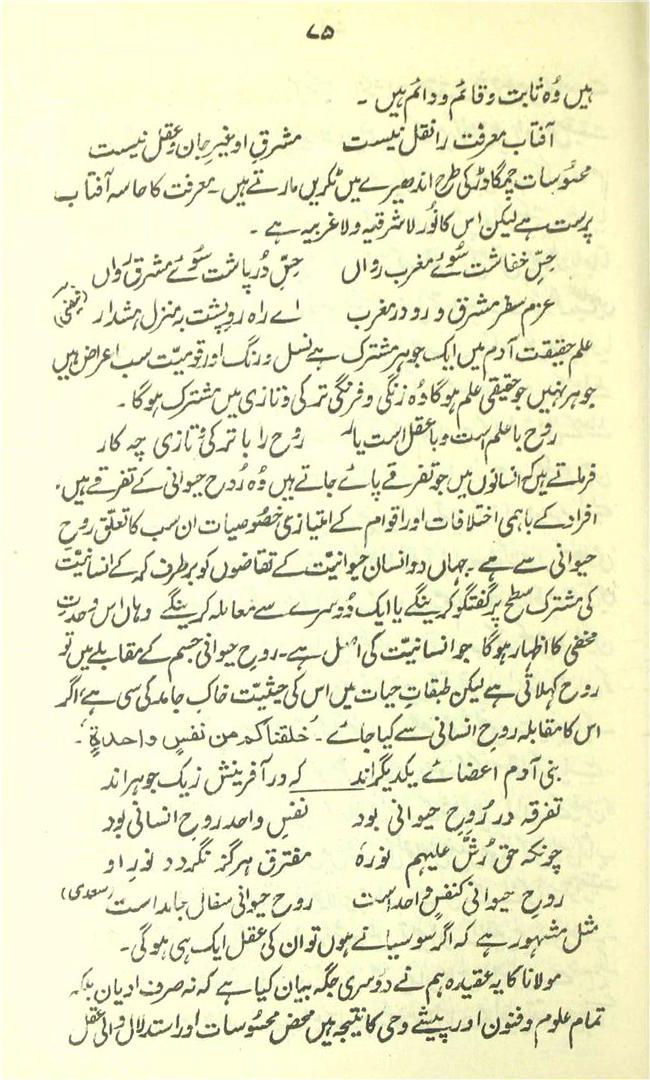 ۷۵
ہیں وُہ ثابت و قائم و دائم ہیں ۔
آفتابِ معرفت را نقل نیست مشرقِ او غیرِ جان و عقل نیست
محسُوسات چمگادڑ کی طرح اندھیرے میں ٹکریں مارتے ہیں۔ معرفت کا حاسہ آفتاب
پرست ہے لیکن اس کا نُور لا شرقیہ و لا غربیہ ہے ۔
حِسِّ خفاشت سُوئے مغرب رواں حِسِّ دُرپاشت سُوئے مشرق رَواں
عزم سفر مشرق و رو در مغرب اے راہ رو پشت بہ منزل ہشدار
علم حقیقت آدم میں ایک جوہر مشترک ہے نسل و رنگ اور قومیّت سب اعراض ہیں
جوہر نہیں جو حقیقی علم ہو گا وُہ زنگی و فرنگی ترکی و تازی میں مشترک ہو گا ۔
روح با علم ست و با عقل است یار رُوح را با ترکی و تازی چہ کار
فرماتے ہیں کہ انسانوں میں جو تفرقے پائے جاتے ہیں وُہ رُوحِ حیوانی کے تفرقے ہیں۔
افراد کے باہمی اختلافات اور اقوام کے امتیازی خصُوصیات ان سب کا تعلّق روحِ
حیوانی سے ہے ۔ جہاں دو انسان حیوانیّت کے تقاضوں کو برطرف کر کے انسانیّت
کی مشترک سطح پر گفتگو کرینگے یا ایک دُوسرے سے معاملہ کرینگے وہاں اس وحدتِ
مخفی کا اظہار ہو گا جو انسانیّت کی اصل ہے۔ روحِ حیوانی جسم کے مقابلے میں تو
روح کہلاتی ہے لیکن طبقاتِ حیات میں اس کی حیثیّت خاکِ جامد کی سی ہے اگر
اس کا مقابلہ روحِ انسانی سے کیا جائے ۔ خلقناکم من نفسٍ واحدۃٍ ۔
بنی آدم اعضائے یکدیگراند کہ در آفرینش زیک جوہراند
تفرقہ در رُوحِ حیوانی بود نفسِ واحد روحِ انسانی بود
چونکہ حق رُشَّ علیہم نورہٗ مفترق ہرگز نگردد نورِ او
روحِ انسانی کنفسِ واحد است روحِ حیوانی سفال جامد است (سعدی)
مثل مشہور ہے کہ اگر سو سیانے ہوں تو ان کی عقل ایک ہی ہو گی۔
مولانا کا یہ عقیدہ ہم نے دوسری جگہ بیان کیا ہے کہ نہ صرف ادیان بلکہ
تمام علوم و فنون اور پیشے وحی کا نتیجہ ہیں محض محسُوسات اور استدلال والی عقل